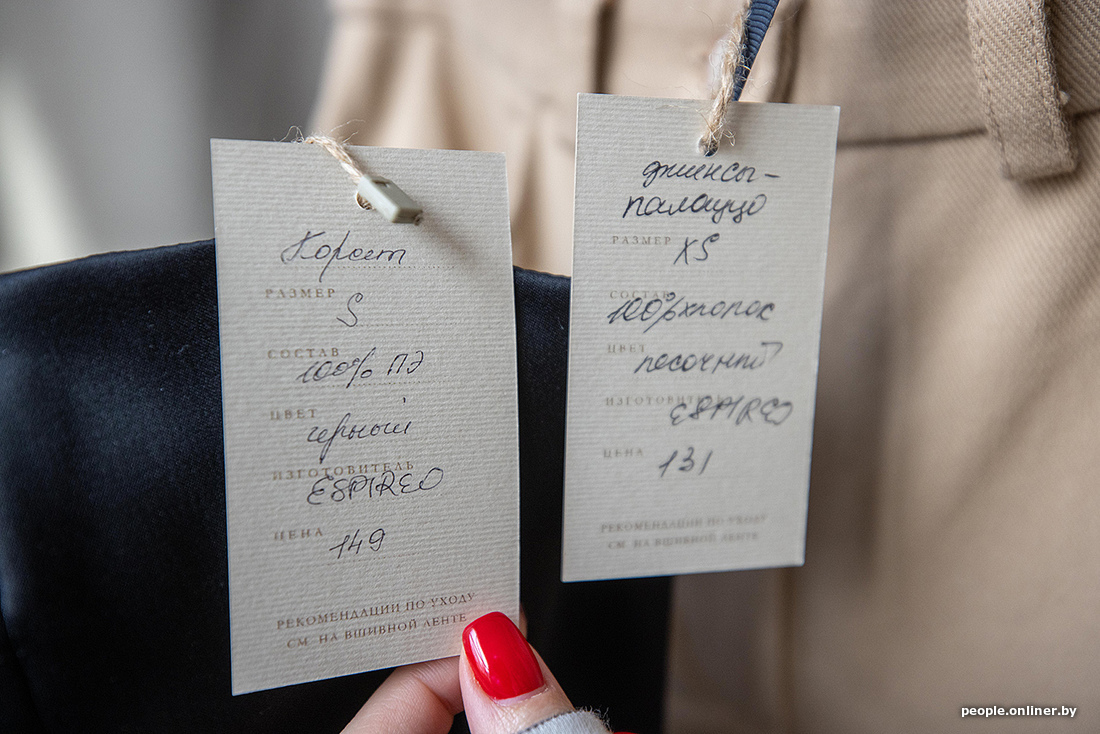 Корсет
РАЗМЕР S
СОСТАВ 100% ПЭ
ЦВЕТ чёрный
ИЗГОТОВИТЕЛЬ ESPIREO
ЦЕНА 149
РЕКОМЕНДАЦИИ ПО УХОДУ
СМ. НА ВШИВНОЙ ЛЕНТЕ
джинсы-
палаццо
РАЗМЕР XS
СОСТАВ 100% хлопок
ЦВЕТ песочный
ИЗГОТОВИТЕЛЬ ESPIREO
ЦЕНА 131
РЕКОМЕНДАЦИИ ПО УХОДУ
СМ. НА ВШИВНОЙ ЛЕНТЕ
people.onliner.by